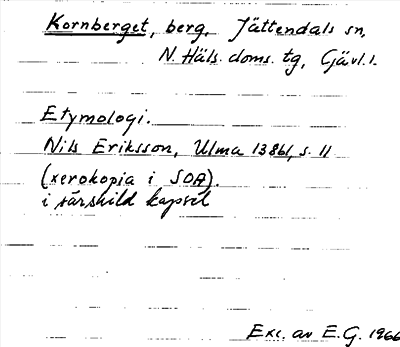 Kornberget, berg, Jättendals sn,
N. Häls. doms. tg, Gävl. l.
Etymologi.
Nils Eriksson, Ulma 13861, s. 11
(xerokopia i SOA).
i särskild kapsel
Exc. av E.G. 1966